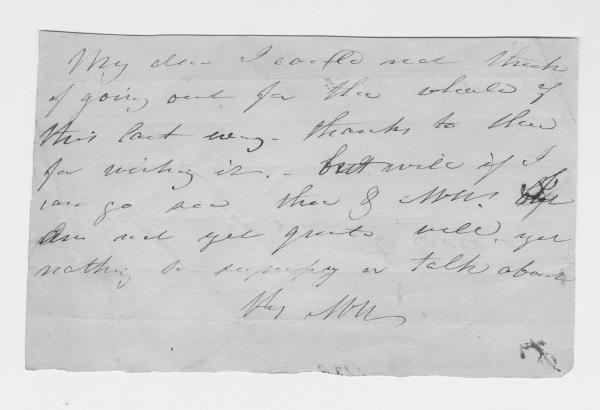 My dear I could not think
of going out for the whole of
this last way - thanks to thee
for wishing it. - but will if I
can go see thee & MM.
am not yet quite well, yet
nothing to or talk about
thy MM